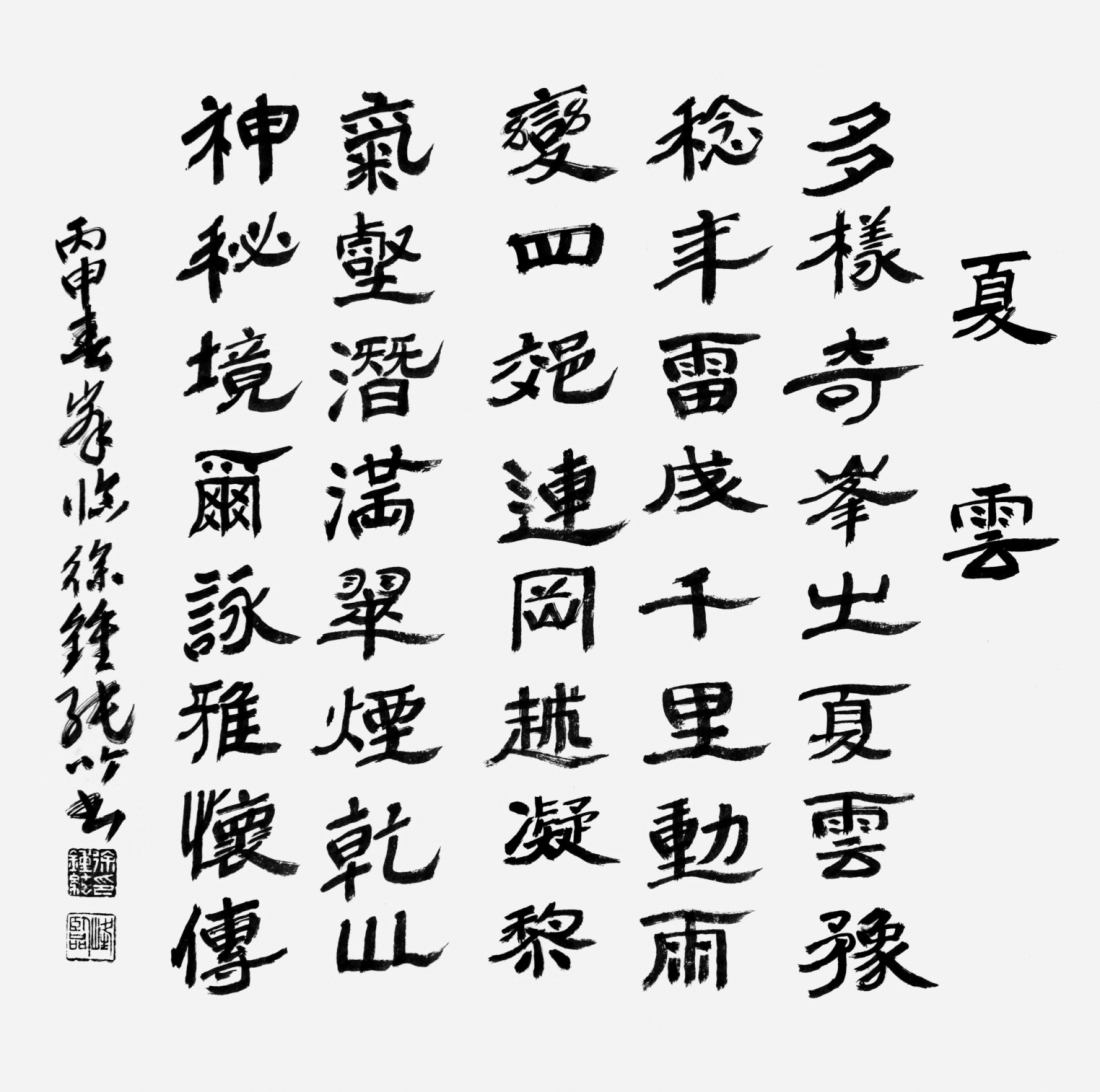 夏雲
多樣奇峯出夏雲豫
稔年雷成千里動雨
變四郊連岡越凝黎
氣壑潛满翠煙乾山
神秘境爾詠雅懷傳
丙申春峯臨徐鍾純書